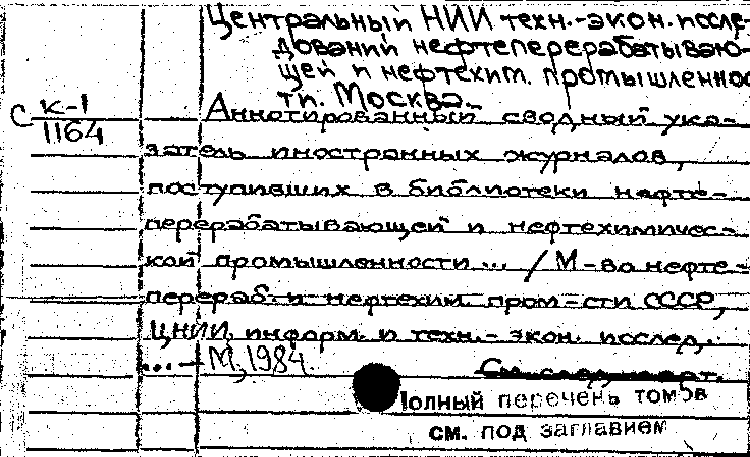 Центральный НИИ техн.-экон. иссле-
дований нефтеперерабатываю-
щей и нефтехим. промышленнос
ти. Москва.
С к-1
1164
Аннотированный сводный ука-
затель иностранных журналов,
поступивших в библиотеки нефте-
перерабатывающей и нефтехимичес-
кой промышленности ... / М-во нефте-
перераб. и нефтехим. пром-сти СССР,
ЦНИИ информ. и техн.-экон. исслед.
... - М, 1984.
См. след. карт.
Полный перечень томов
см. под заглавием